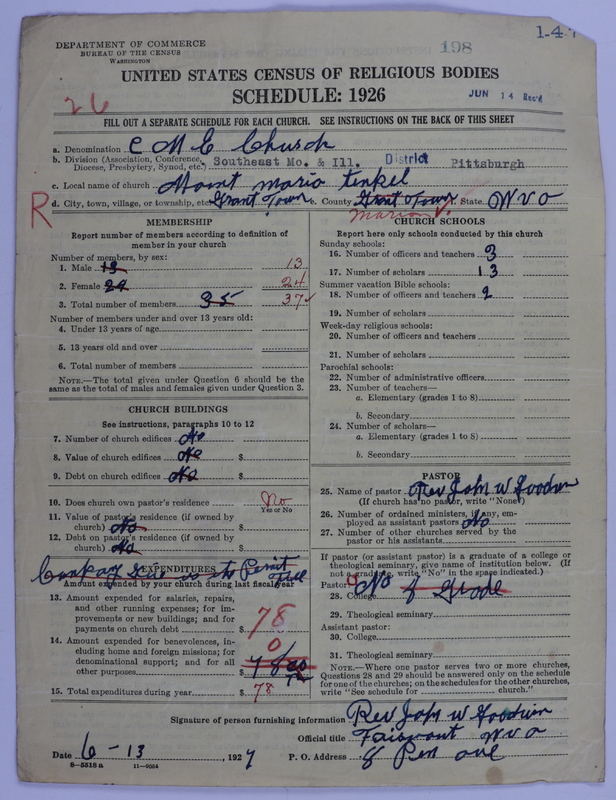 198
1-4-
DEPARTMENT OF COMMERCE
BUREAU OF THE CENSUS
WASHINGTON
UNITED STATES CENSUS OF RELIGIOUS BODIES
SCHEDULE: 1926
26
JUN 14 Rec'd
FILL OUT A SEPARATE SCHEDULE FOR EACH CHURCH. SEE INSTRUCTIONS ON THE BACK OF THIS SHEET
a. Denomination C M E Church
b. Division (Association, Conference, Diocese, Presbytery, Synod, etc.) Southeast Mo. & Ill. District Pittsburgh
c. Local name of church Mount maria tinkel
R
d. City, town, village, or township, etc. Grant Town e. County Grant Town f. State W V a
Marion
MEMBERSHIP
Report number of members according to definition of member in your church
Number of members, by sex:
1. Male 13 13
2. Female 24 24
3. Total number of members 35 37
Number of members under and over 13 years old:
4. Under 13 years of age
5. 13 years old and over
6. Total number of members
NOTE.—The total given under Question 6 should be the same as the total of males and females given under Question 3.
CHURCH BUILDINGS
See instructions, paragraphs 10 to 12
7. Number of church edifices No
8. Value of church edifices No $
9. Debt on church edifices No $
10. Does church own pastor's residence No
Yes or No
11. Value of pastor's residence (if owned by church) No $
12. Debt on pastor's residence (if owned by church) No $
EXPENDITURES
Amount expended by your church during last fiscal year
13. Amount expended for salaries, repairs, and other running expenses; for improvements or new buildings; and for payments on church debt $ 78
14. Amount expended for benevolences, including home and foreign missions; for denominational support; and for all other purposes $ 0
15. Total expenditures during year $ 78
CHURCH SCHOOLS
Report here only schools conducted by this church
Sunday schools:
16. Number of officers and teachers 3
17. Number of scholars 13
Summer vacation Bible schools:
18. Number of officers and teachers 2
19. Number of scholars
Week-day religious schools:
20. Number of officers and teachers
21. Number of scholars
Parochial schools:
22. Number of administrative officers
23. Number of teachers—
a. Elementary (grades 1 to 8)
b. Secondary
24. Number of scholars—
a. Elementary (grades 1 to 8)
b. Secondary
PASTOR
25. Name of pastor Rev John W Goodwin
(If church has no pastor, write "None")
26. Number of ordained ministers, if any, employed as assistant pastors No
27. Number of other churches served by the pastor or his assistants
If pastor (or assistant pastor) is a graduate of a college or theological seminary, give name of institution below. (If not a graduate, write "No" in the space indicated.)
Pastor:
28. College No 8 Grade
29. Theological seminary
Assistant pastor:
30. College
31. Theological seminary
NOTE.—Where one pastor serves two or more churches, Questions 28 and 29 should be answered only on the schedule for one of the churches; on the schedules for the other churches, write "See schedule for church."
Signature of person furnishing information Rev John W Goodwin
Official title Fairmont W V a
Date 6-13, 1927 P. O. Address 8 Pen ave
8-5518 a 11-9054